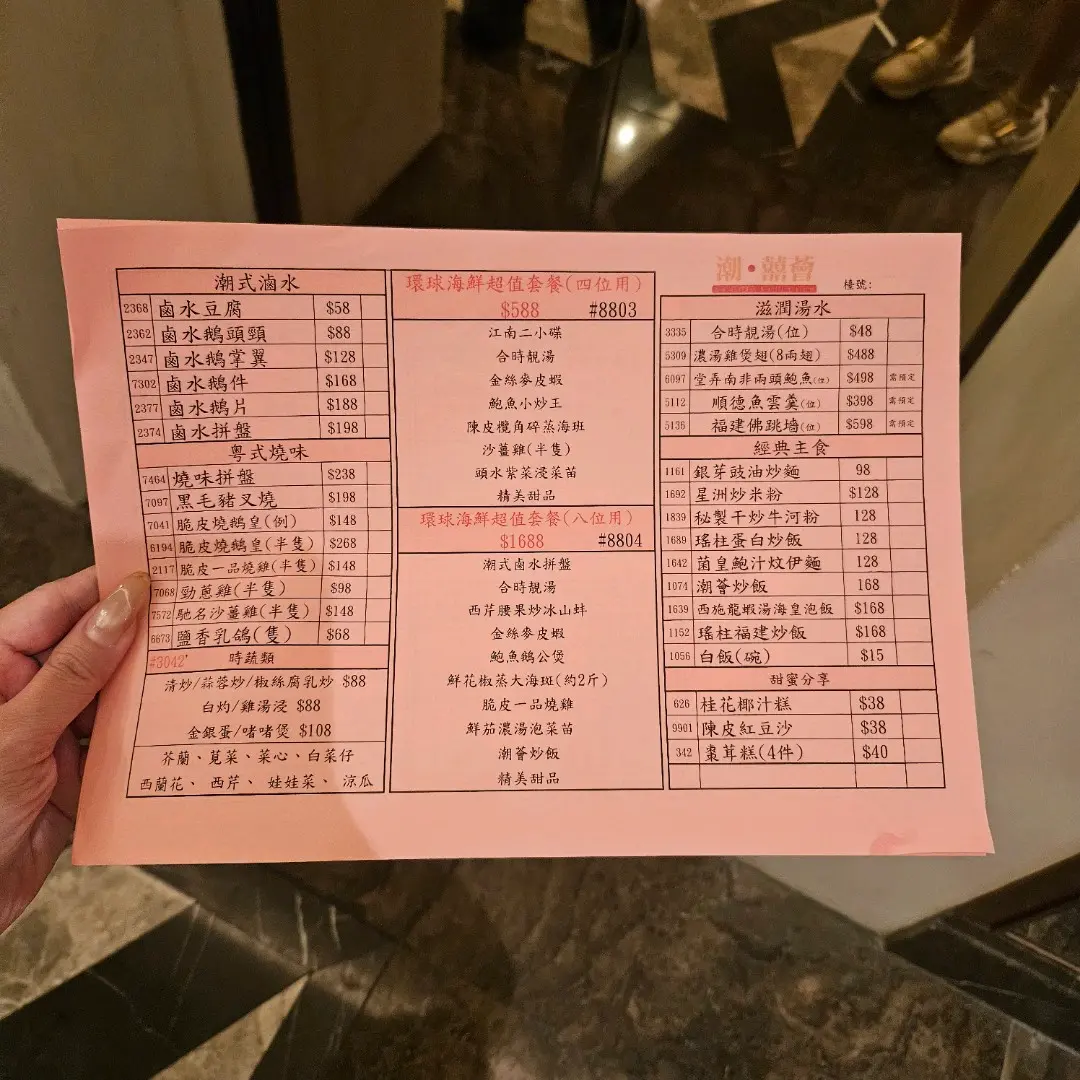 潮式滷水
2368 鹵水豆腐 $58
2362 鹵水鵝頭頸 $88
2347 鹵水鵝掌翼 $128
7302 鹵水鵝件 $168
2377 鹵水鵝片 $188
2374 鹵水拼盤 $198
粵式燒味
7464 燒味拼盤 $238
7097 黑毛豬叉燒 $198
7041 脆皮燒鵝皇(例) $148
6194 脆皮燒鵝皇(半隻) $268
2117 脆皮一品燒雞(半隻) $148
7068 勁蔥雞(半隻) $98
7572 馳名沙薑雞(半隻) $148
6673 鹽香乳鴿(隻) $68
#3042' 時蔬類
清炒/蒜蓉炒/椒絲腐乳炒 $88
白灼/雞湯浸 $88
金銀蛋/啫啫煲 $108
芥蘭、莧菜、菜心、白菜仔
西蘭花、 西芹、 娃娃菜、 涼瓜
環球海鮮超值套餐(四位用)
$588 #8803
江南二小碟
合時靚湯
金絲麥皮蝦
鮑魚小炒王
陳皮欖角碎蒸海班
沙薑雞(半隻)
頭水紫菜浸菜苗
精美甜品
環球海鮮超值套餐(八位用)
$1688 #8804
潮式鹵水拼盤
合時靚湯
西芹腰果炒冰山蚌
金絲麥皮蝦
鮑魚鵝公煲
鮮花椒蒸大海斑(約2斤)
脆皮一品燒雞
鮮茄濃湯泡菜苗
潮薈炒飯
精美甜品
潮•囍薈
檯號:
滋潤湯水
3335 合時靚湯(位) $48
5309 濃湯雞煲翅(8兩翅) $488
6097 堂弄南非兩頭鮑魚(位) $498 需預定
5112 順德魚雲羹(位) $398 需預定
5136 福建佛跳墻(位) $598 需預定
經典主食
1161 銀芽豉油炒麵 98
1692 星洲炒米粉 $128
1839 秘製干炒牛河粉 128
1689 瑤柱蛋白炒飯 128
1642 菌皇鮑汁炆伊麵 128
1074 潮薈炒飯 168
1639 西施龍蝦湯海皇泡飯 $168
1152 瑤柱福建炒飯 $168
1056 白飯(碗) $15
甜蜜分享
626 桂花椰汁糕 $38
9901 陳皮紅豆沙 $38
342 棗茸糕(4件) $40